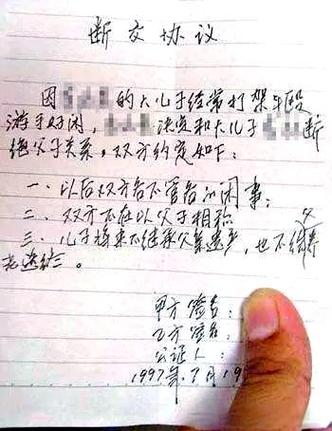 断交协议
因的大儿子经常打架斗殴
游手好闲，决定和大儿子断
绝父子关系，双方约定如下：
一、以后双方各不管各的闲事；
二、双方不在以父子相称
三、儿子将来不继承父亲遗产，也不给父
养老送终。
甲方签名：
乙方签名：
公证人：
1997年.7月19